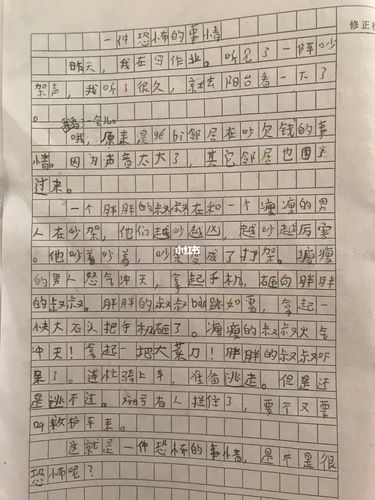 修正
一件恐怖的事情
昨天，我在写作业。听见了一阵吵
架声，我听了很久，就去阳台看一下了
。
哦，原来是隔bi邻居在吵欠钱的事
情。因为声音太大了，其它邻居也围了
过来。
一个胖胖的叔叔在和一个瘦瘦的男
人在吵架，他们越吵越凶，越吵越厉害
。他吵着吵着，吵架变成了打架。瘦瘦
的男人怒气冲天，拿起手机，砸向胖胖
的叔叔。胖胖的叔叔bào跳如雷，拿起一
块大石头把手机砸了。瘦瘦的叔叔火气
冲天！拿起一把大菜刀！胖胖的叔叔吓
呆了。连忙骑上车，准备逃走。但是还
是逃不过。幸亏有人拦住了，要不又要
叫救护车来。
这就是一件恐怖的事情，是不是很
恐怖呢？
小红书